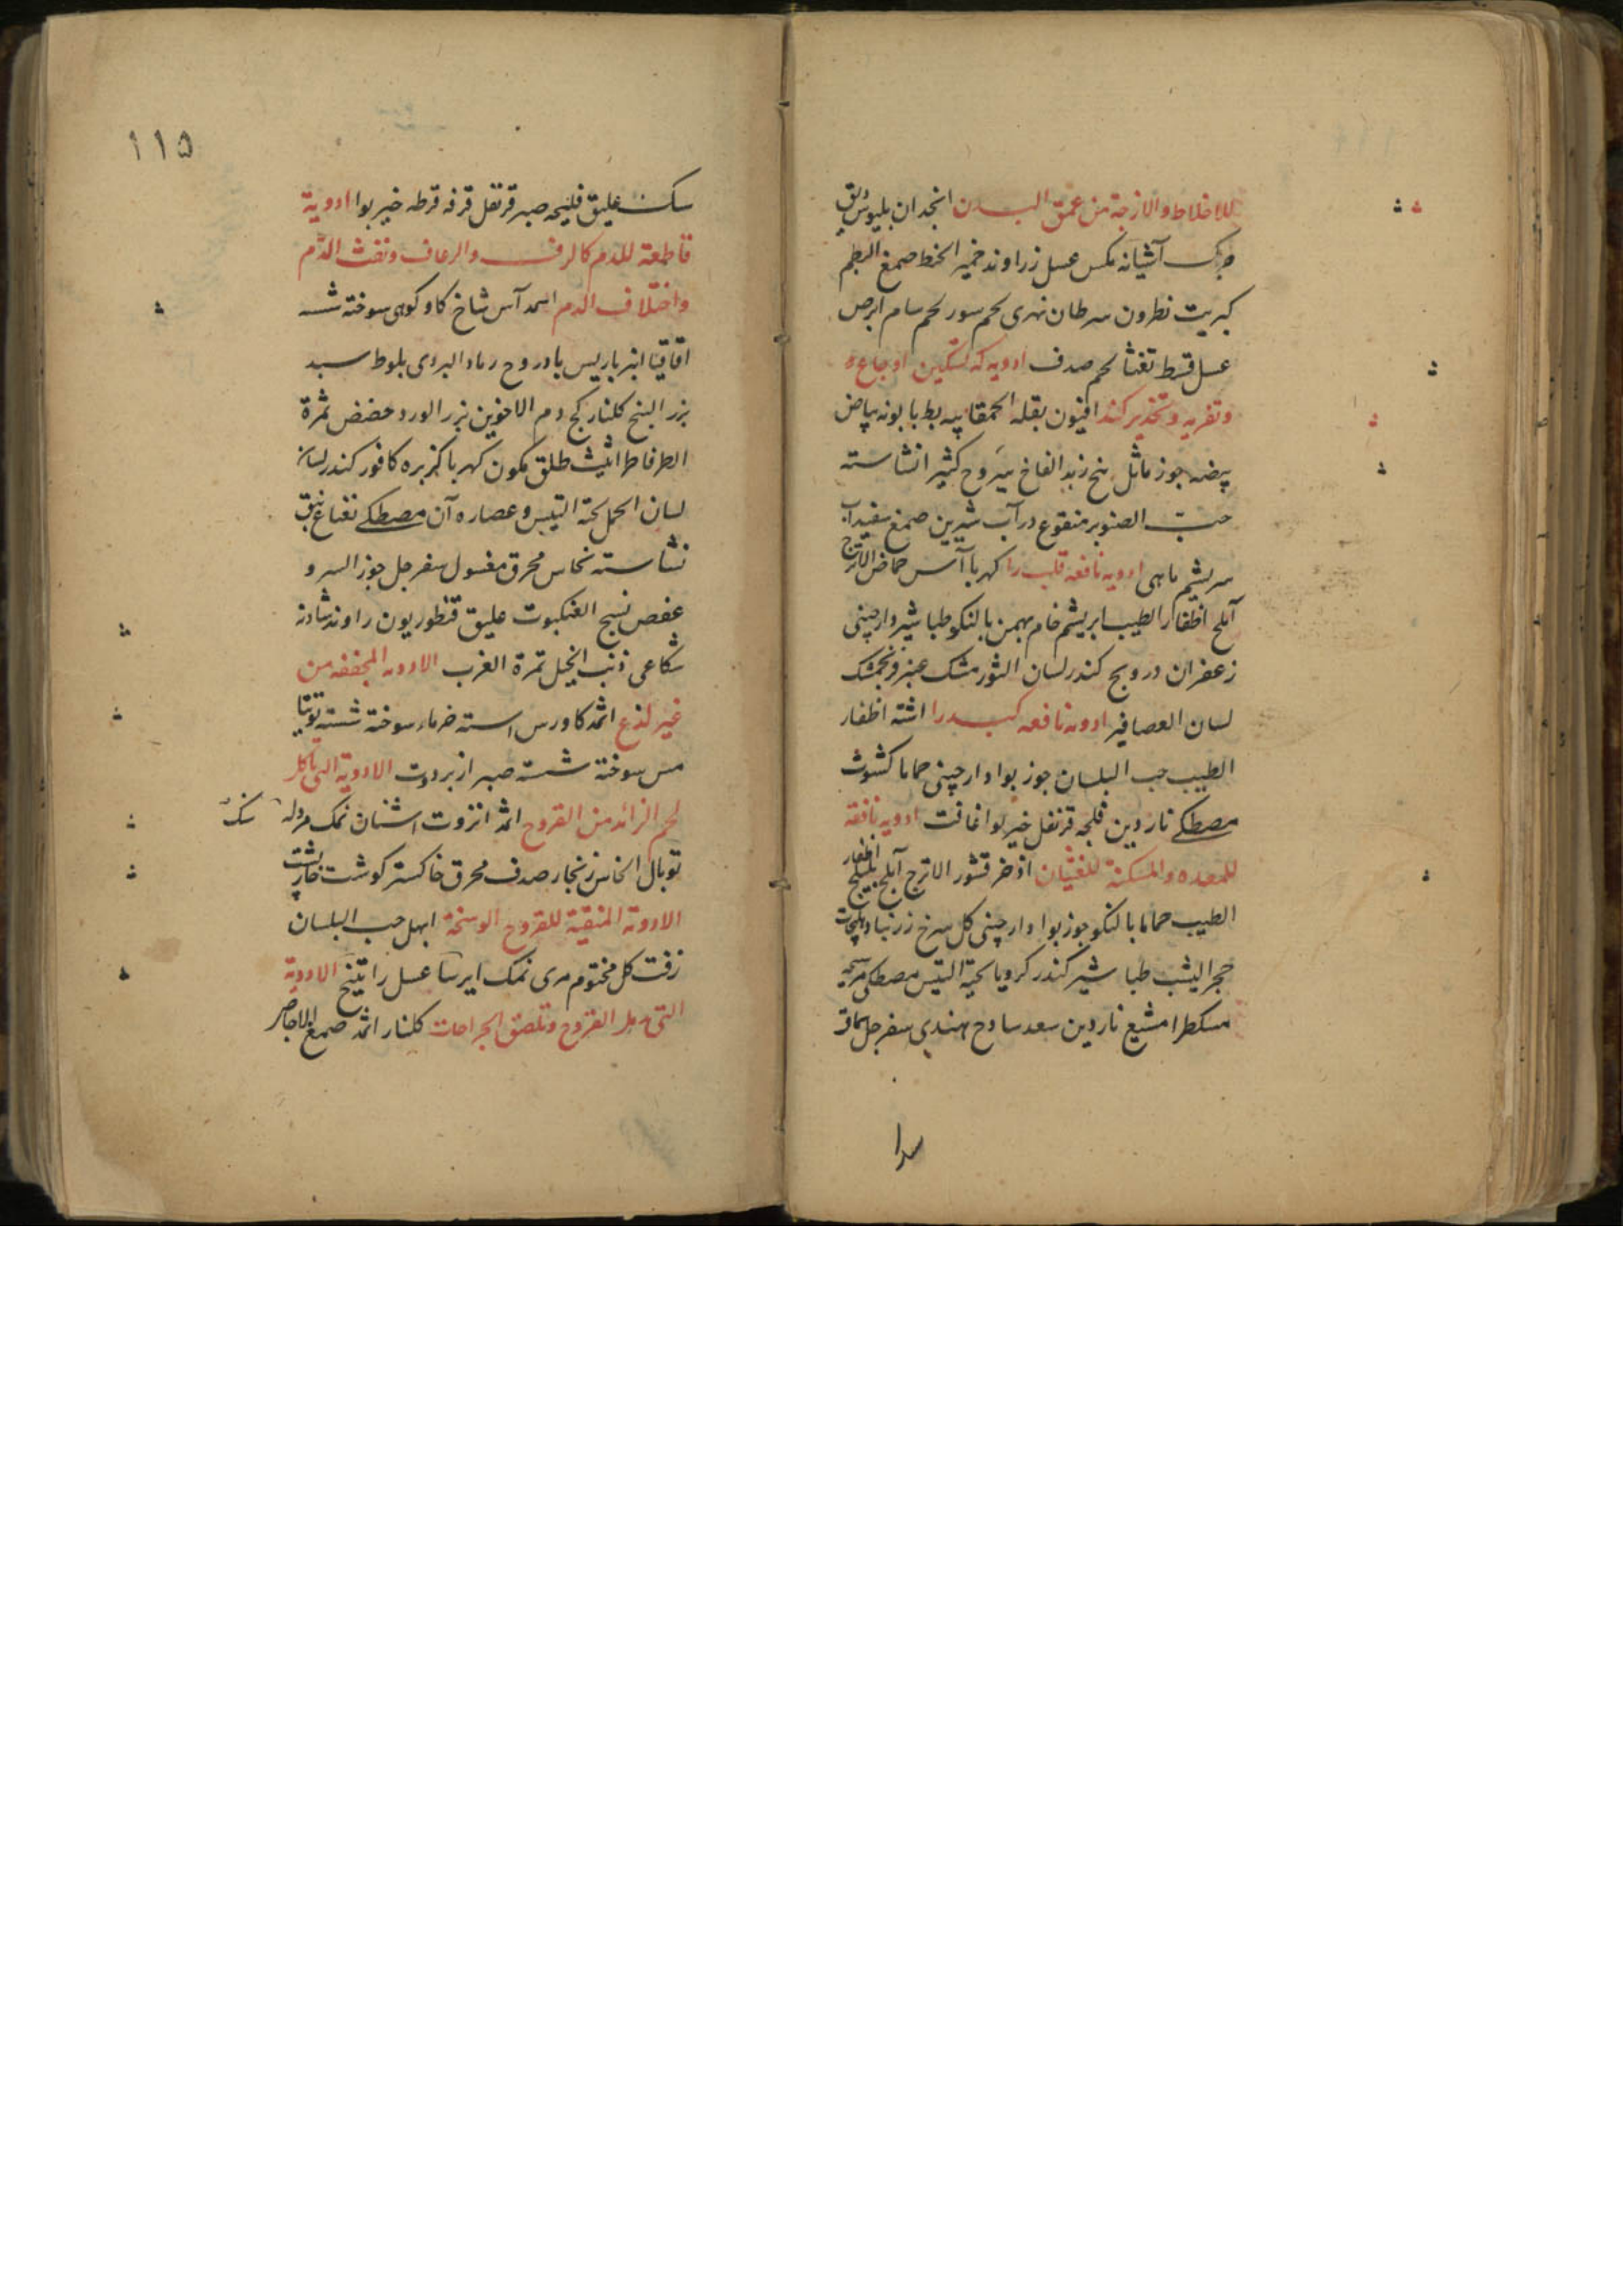 للاخلاط والازجة من عمق البدن انجدان بلبوس دبق
آشیانه مکس عسل زراوند خمیر الحنطه صمغ البطم
کبریت نطرون سرطان نهری لحم سور لحم سام ابرص
عسل قسط تفثا لحم صدف ادویه که تسکین اوجاع
وتغریه وتخذیر کند افیون بقلة الحمقا پیه بط بابونه بیاض
بیضه جوز ماثل بنج زبد القاخ یبروح کثیرا نشاسته
حب الصنوبر منقوع در آب شیرین صمغ سفیداب
سریشم ماهی ادویه نافعه قلب را کهربا آس حماض الاترج
آملج اظفار الطیب ابریشم خام بهمن بالنکو طباشیر دارچینی
زعفران درونج کندر لسان الثور مشک عنبر فرنجمشک
لسان العصافیر ادویه نافعه کبد را اشنه اظفار
الطیب حب البلسان جوزبوا دارچینی حماما کشوث
مصطکے ناردین فلنجه قرنفل خیربوا غافت ادویه نافعة
للمعده والمسکنة للغثیان اذخر قشور الاترج آملج بلیلج اظفار
الطیب حماما بالنکو جوزبوا دارچینی کل سرخ زرنباد
حجر الیشب طباشیر کندر کرویا لحیة التیس مصطکی
مسکطرامشیع ناردین سعد سادج هندی سفرجل سماق
سدا
۱۱۵
سک علیق فلیجه صبر قرنفل قرفه قرطه خیربوا ادویة
قاطعة للدم کالرف والرعاف ونفث الدم
واختلاف الدم آس شاخ کاو کوهی سوخته شسته
اقاقیا انبرباریس بادروح رماد البردی بلوط سبد
بزر البنج کلنار کج دم الاخوین بزر الورد حضض ثمرة
الطرفا طراثیث طلق کمون کهربا کزبره کافور کندر لسان
لسان الحمل لحیة التیس وعصاره آن مصطکے نعناع نبق
نشاسته نحاس محرق مغسول سفرجل جوز السرو
عفص نسج العنکبوت علیق قنطوریون راوند شادنه
شکاعی ذنب الخیل ثمرة الغرب الادویه المجففه من
غیر لذع اثمد کاورس استه خرماء سوخته شسته توتیا
مس سوخته شسته صبر ازبردوت الادویة التی تاکل
لحم الزائد من القروح اثمد انزروت اشنان نمک
توبال النحاس زنجار صدف محرق خاکستر کوشت خارپشت
الادویة المنقیة للقروح الوسخة ابهل حب البلسان
زفت کل مختوم مری نمک ایرسا عسل راتینج الادویة
التی تدمل القروح وتلصق الجراحات کلنار اثمد صمغ الاجاص